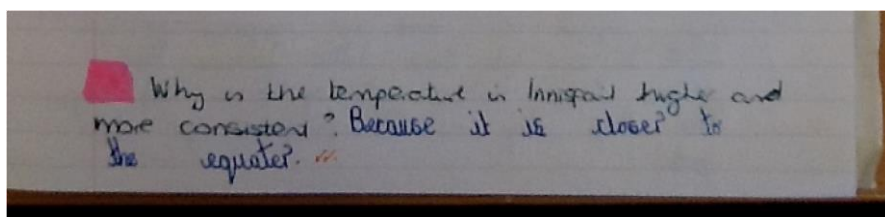 Why is the temperature in Innisfail higher and
more consistent? Because it is closer to
the equater.